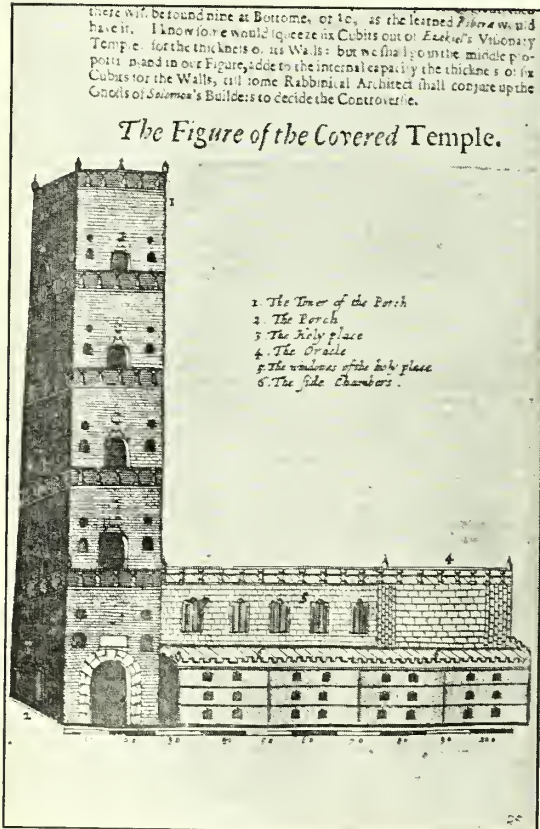 there will be found nine at Bottome, or 10, as the learned Ribera would
have it. I know some would squeeze six Cubits out of Ezekiel's Visionary
Temple for the thicknes of its Walls: but we shall go in the middle pro-
portion, and in our Figure, adde to the internal capacity the thicknes of six
Cubits for the Walls, till some Rabbinical Architect shall conjure up the
Ghosts of Solomon's Builders to decide the Controversie.
The Figure of the Covered Temple.
1
1. The Tower of the Porch
2. The Porch
3 The Holy place
4. The Oracle
5. The windowes of the holy place
6. The side Chambers.
4
5
2
20 30 50 60 70 80 90 100